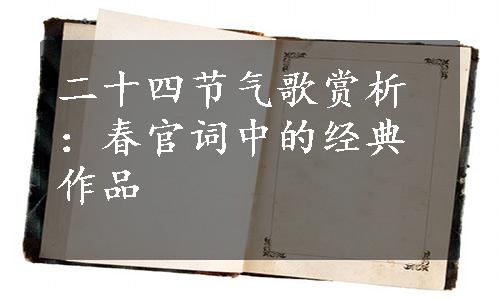 二十四节气歌赏析
：春官词中的经典
作品